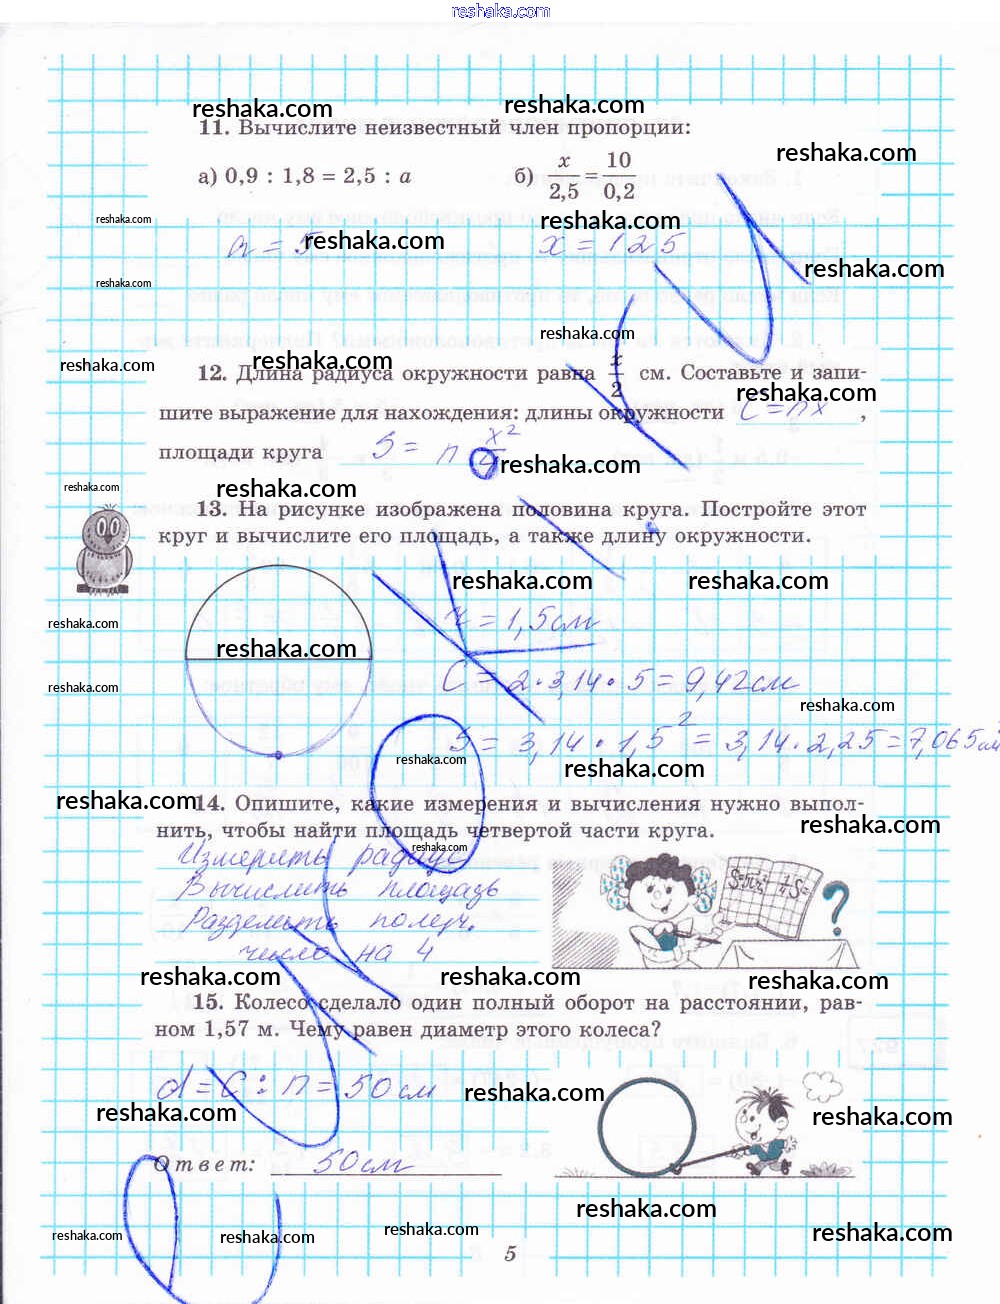 reshaka.com
reshaka.com reshaka.com
11. Вычислите неизвестный член пропорции:
reshaka.com
а) 0,9 : 1,8 = 2,5 : a б) x/2,5 = 10/0,2
reshaka.com reshaka.com
a = 5 reshaka.com x = 125
reshaka.com
reshaka.com
reshaka.com
reshaka.com reshaka.com
12. Длина радиуса окружности равна x/2 см. Составьте и запи-
reshaka.com
шите выражение для нахождения: длины окружности C = πx ,
площади круга S = π x²/4
reshaka.com
reshaka.com reshaka.com
13. На рисунке изображена половина круга. Постройте этот
круг и вычислите его площадь, а также длину окружности.
reshaka.com reshaka.com
reshaka.com r = 1,5 см
reshaka.com
reshaka.com C = 2·3,14·5 = 9,42 см
reshaka.com
S = 3,14·1,5² = 3,14·2,25 = 7,065 см
reshaka.com reshaka.com
reshaka.com
14. Опишите, какие измерения и вычисления нужно выпол-
reshaka.com
нить, чтобы найти площадь четвертой части круга.
reshaka.com
Измерять радиус
Вычислить площадь
Разделить получ.
число на 4
S=πr² ¼S= ?
reshaka.com reshaka.com reshaka.com
15. Колесо сделало один полный оборот на расстоянии, рав-
ном 1,57 м. Чему равен диаметр этого колеса?
d = C : π = 50 см
reshaka.com reshaka.com reshaka.com
Ответ: 50 см
reshaka.com
reshaka.com reshaka.com reshaka.com reshaka.com
5